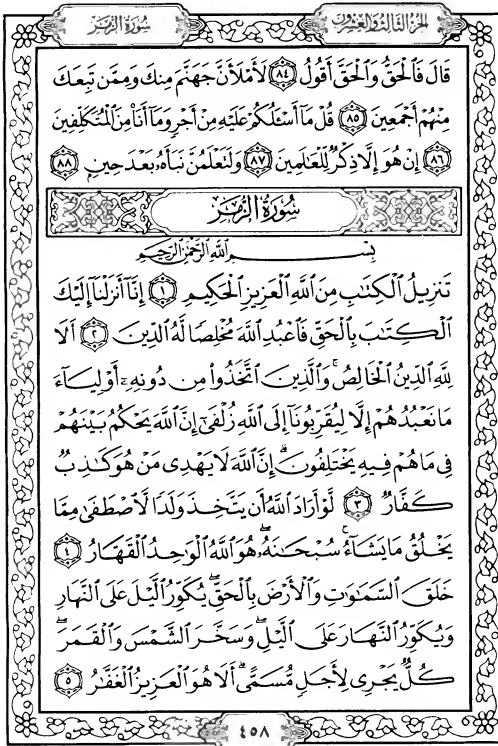 الجزء الثالث والعشرون
سورة الزمر
قَالَ فَالْحَقُّ وَالْحَقَّ أَقُولُ ٨٤ لَأَمْلَأَنَّ جَهَنَّمَ مِنكَ وَمِمَّن تَبِعَكَ
مِنْهُمْ أَجْمَعِينَ ٨٥ قُلْ مَا أَسْـَٔلُكُمْ عَلَيْهِ مِنْ أَجْرٍ وَمَا أَنَا۠ مِنَ الْمُتَكَلِّفِينَ
٨٦ إِنْ هُوَ إِلَّا ذِكْرٌ لِّلْعَالَمِينَ ٨٧ وَلَتَعْلَمُنَّ نَبَأَهُۥ بَعْدَ حِينٍ ٨٨
سُورَةُ الزُّمَرِ
بِسْمِ اللَّهِ الرَّحْمَٰنِ الرَّحِيمِ
تَنزِيلُ الْكِتَابِ مِنَ اللَّهِ الْعَزِيزِ الْحَكِيمِ ١ إِنَّا أَنزَلْنَا إِلَيْكَ
الْكِتَابَ بِالْحَقِّ فَاعْبُدِ اللَّهَ مُخْلِصًا لَّهُ الدِّينَ ٢ أَلَا
لِلَّهِ الدِّينُ الْخَالِصُ ۚ وَالَّذِينَ اتَّخَذُوا مِن دُونِهِۦ أَوْلِيَاءَ
مَا نَعْبُدُهُمْ إِلَّا لِيُقَرِّبُونَا إِلَى اللَّهِ زُلْفَىٰ إِنَّ اللَّهَ يَحْكُمُ بَيْنَهُمْ
فِي مَا هُمْ فِيهِ يَخْتَلِفُونَ ۗ إِنَّ اللَّهَ لَا يَهْدِي مَنْ هُوَ كَٰذِبٌ
كَفَّارٌ ٣ لَّوْ أَرَادَ اللَّهُ أَن يَتَّخِذَ وَلَدًا لَّاصْطَفَىٰ مِمَّا
يَخْلُقُ مَا يَشَاءُ ۚ سُبْحَٰنَهُۥ ۖ هُوَ اللَّهُ الْوَٰحِدُ الْقَهَّارُ ٤
خَلَقَ السَّمَٰوَٰتِ وَالْأَرْضَ بِالْحَقِّ ۖ يُكَوِّرُ الَّيْلَ عَلَى النَّهَارِ
وَيُكَوِّرُ النَّهَارَ عَلَى الَّيْلِ ۖ وَسَخَّرَ الشَّمْسَ وَالْقَمَرَ ۖ
كُلٌّ يَجْرِي لِأَجَلٍ مُّسَمًّى ۗ أَلَا هُوَ الْعَزِيزُ الْغَفَّٰرُ ٥
٤٥٨